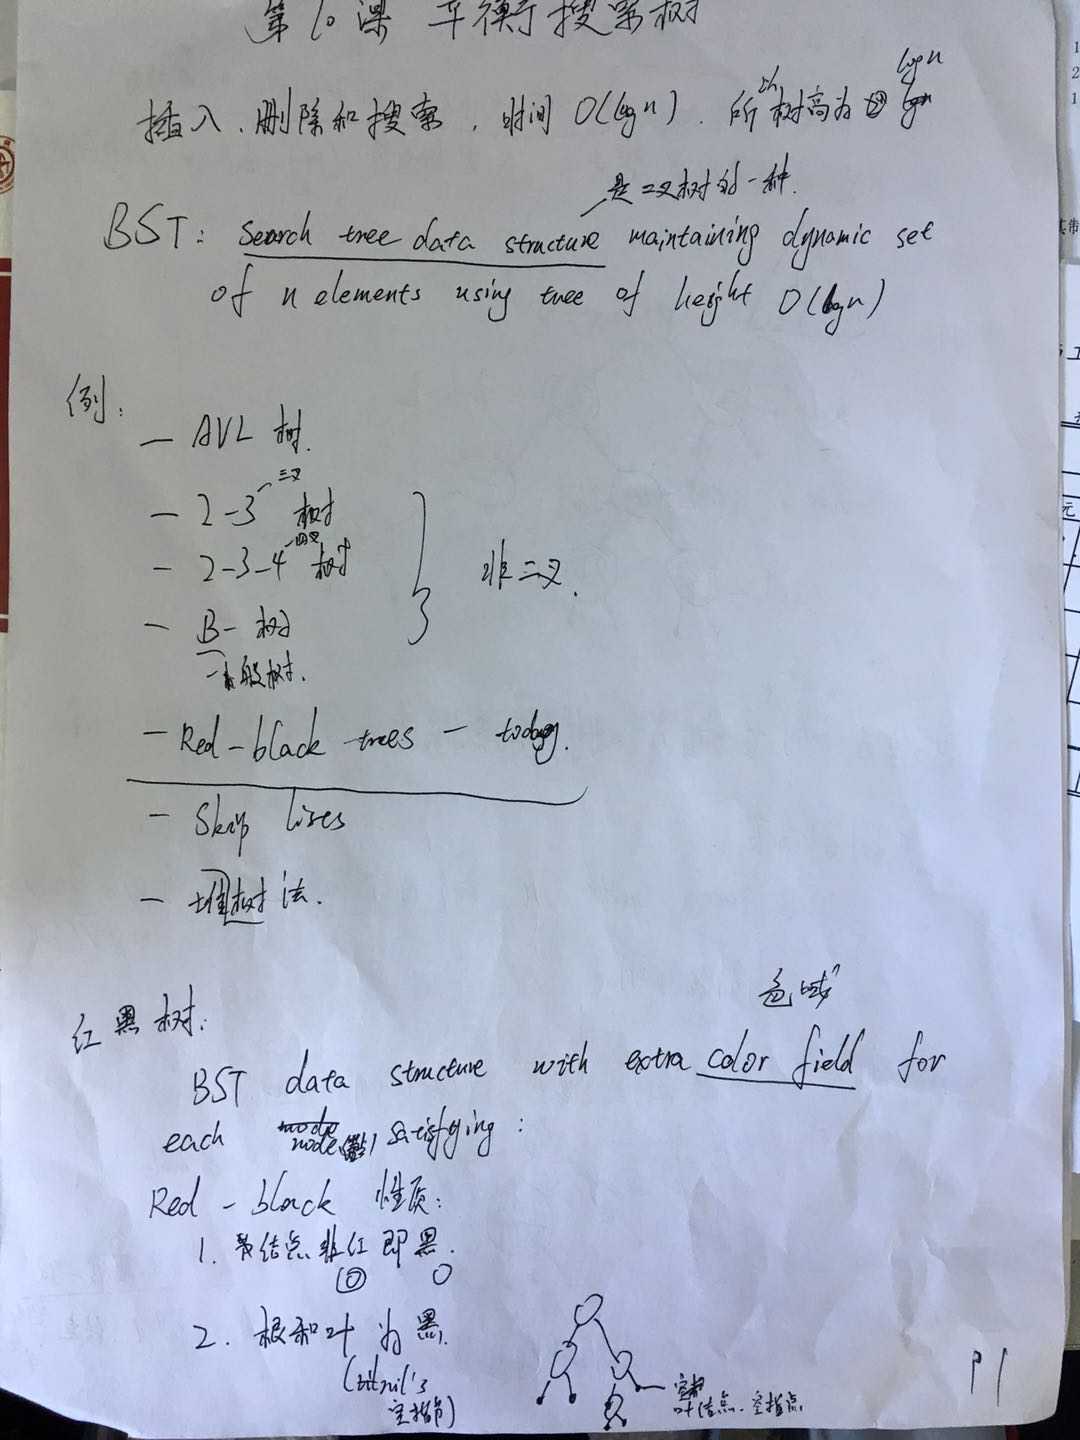 第10课 平衡搜索树
插入、删除和搜索，时间O(lgn)，所以树高为 logn
是二叉树的一种.
BST: Search tree data structure maintaining dynamic set
of n elements using tree of height O(lgn)
例:
— AVL 树.
三叉
— 2-3 树
四叉
— 2-3-4 树
非二叉.
— B- 树
一般树.
— Red-black trees — today.
— Skip lises
— 树法.
色域
红黑树:
BST data structure with extra color field for
each node satisfying:
Red-black 性质:
1. 结点非红即黑.
2. 根和叶为黑.
(nil's
空指
叶结点. 空指点
P1